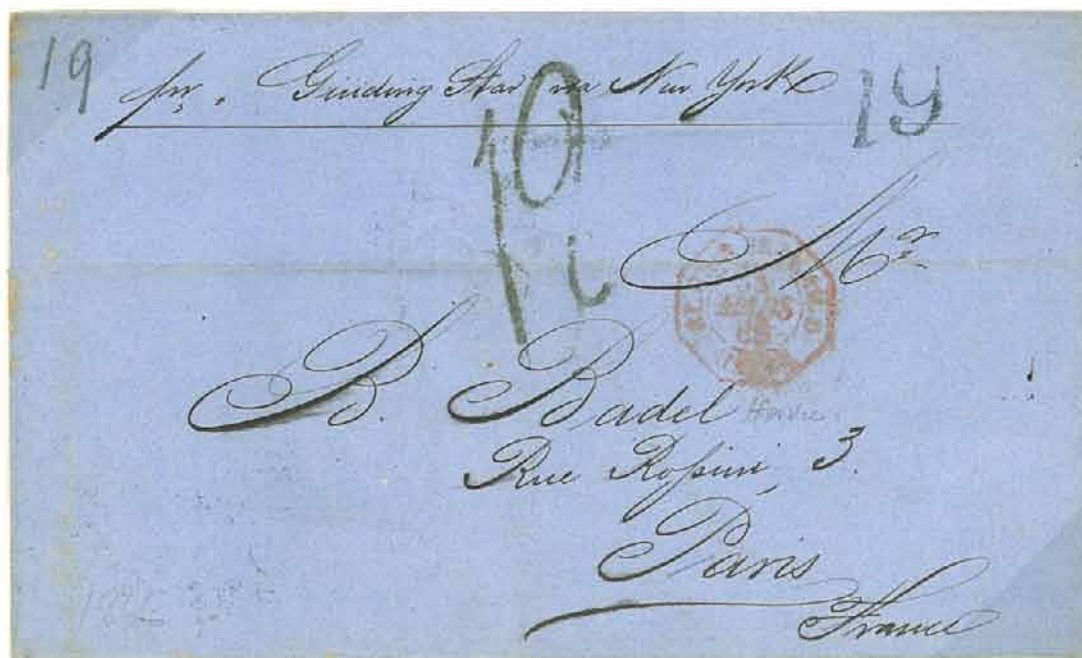 19
pr. Guiding Star via New York
19
10
Mr
B. Badel
Havre
Rue Rossini, 3.
Paris
France